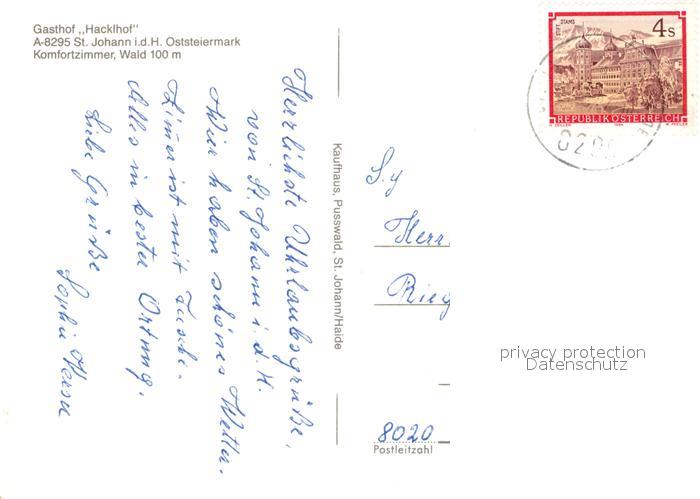 Gasthof „Hacklhof"
A-8295 St. Johann i.d.H. Oststeiermark
Komfortzimmer, Wald 100 m
Herrlichste Uhrlaubsgrüße,
von St. Johann i. d. H.
Wier haben schönes Wetter.
Zimer ist mit Tusche.
Alles in bester Ortnug.
Liebe Grüße
Sophie
Kaufhaus, Pusswald, St. Johann/Haide
STIFT STAMS
4 S
REPUBLIK ÖSTERREICH
S.g
Herr
Rieg
privacy protection
Datenschutz
8020
Postleitzahl